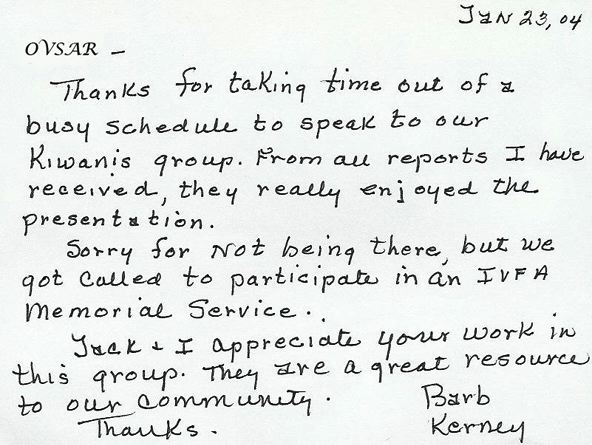 Jan 23, 04
OVSAR –
Thanks for taking time out of a
busy schedule to speak to our
Kiwanis group. From all reports I have
received, they really enjoyed the
presentation.
Sorry for not being there, but we
got called to participate in an IVFA
Memorial Service.
Jack & I appreciate your work in
this group. They are a great resource
to our community.
Barb
Thanks.
Kerney